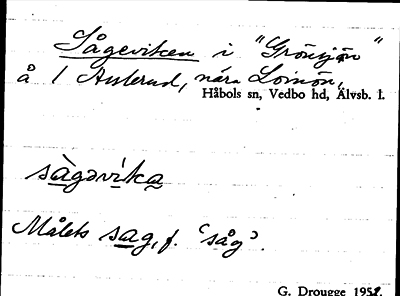 Sågeviken i "Grönsjön"
å 1 Anlerud, nära Loinön,
Håbols sn, Vedbo hd, Älvsb. l.
sàgəvíka
Målets sag, f. 'såg'.
G. Drougge 1951.